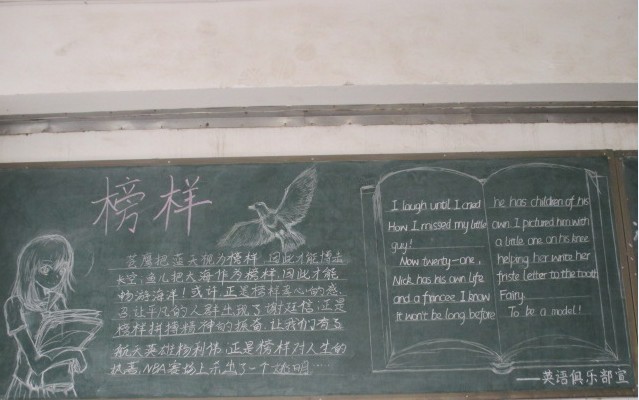 榜样
苍鹰把蓝天视为榜样,因此才能搏击
长空,鱼儿把大海作为榜样,因此才能
畅游海洋!或许正是榜样真心的感
召,让平凡的人群出现了谢延信,正是
榜样拼搏精神的振奋,让我们有了
航天英雄杨利伟,正是榜样对人生的
热忱,NBA赛场上杀出了一个姚明…
I laugh until I cried
How I missed my little
guy!
Now twenty-one,
Nick has his own life
and a financee. I know
It won't be long before
he has children of his
own. I pictured him with
a little one on his knee
helping her write her
friste letter to the tooth
Fairy.
To be a model!
——英语俱乐部宣